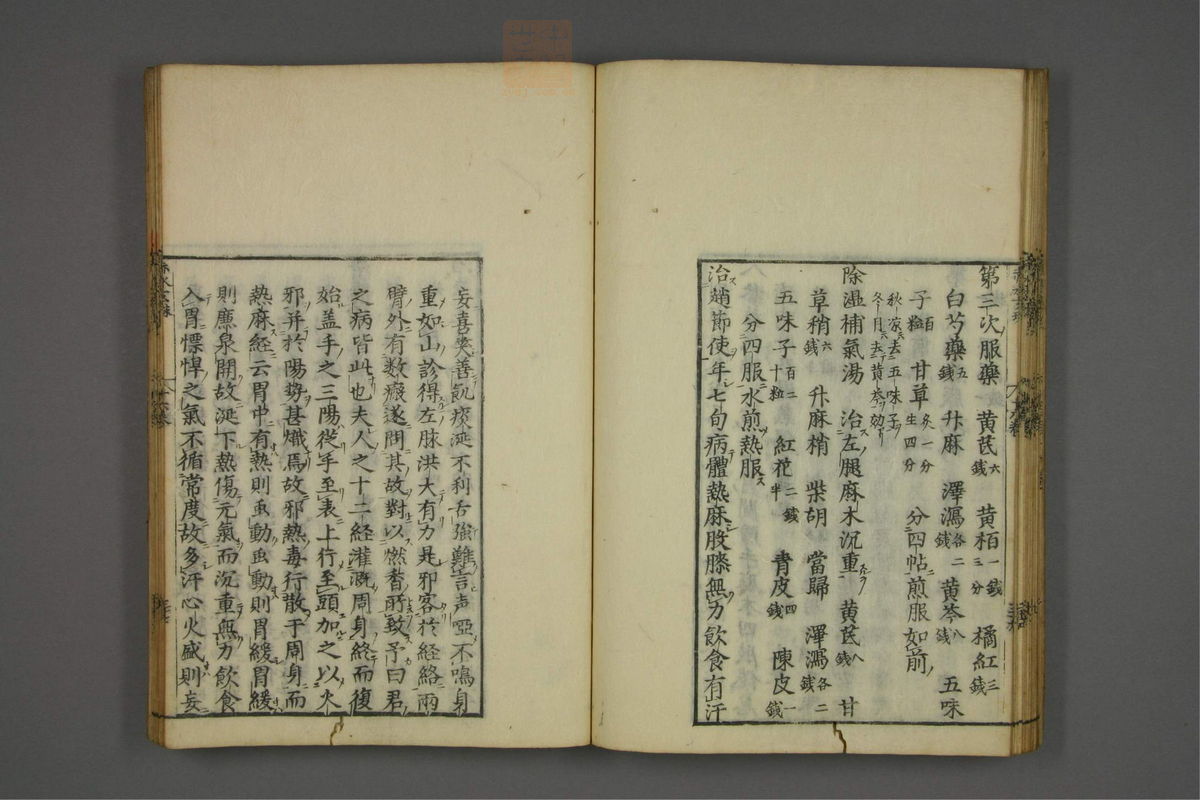 第三次服藥　黄芪六錢　黄栢一錢三分　橘紅三錢
白芍藥五錢　升麻　澤瀉各二錢　黄芩八錢　五味
子百粒　甘草炙一分生四分　分四帖煎服如前
秋冬家月去五味子
除湿補氣湯　治左腿麻木沉重　黄芪八錢　甘
草梢六錢　升麻梢　柴胡　當歸　澤瀉各二錢
五味子百二十粒　紅花二錢半　青皮四錢　陳皮一錢
分四服水煎熱服
治趙節使年七旬病體熱麻股膝無力飲食有汗
妄喜笑善飢痰涎不利舌強難言声啞不鳴身
重如山診得左脉洪大有力是邪客於経絡兩
臂外有数瘢遂問其故對以燃香所致予曰君
之病皆此也夫人之十二経灌溉周身終而復
始盖手之三陽從手至表上行至頭加之以火
邪并於陽勢甚熾焉故邪熱毒行散于周身而
熱麻経云胃中有熱則虫動虫動則胃緩胃緩
則廉泉開故涎下熱傷元氣而沉重無力飲食
入胃慓悍之氣不循常度故多汗心火盛則妄